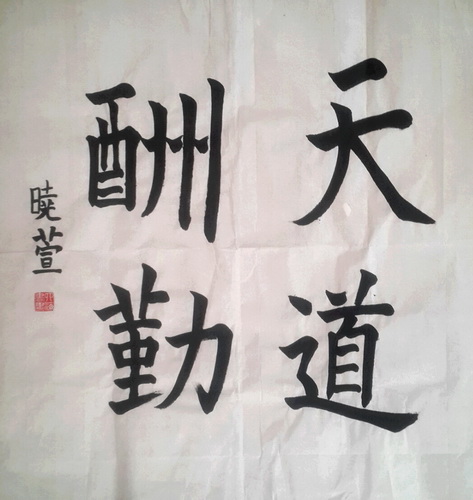 天道
酬勤
曉萱